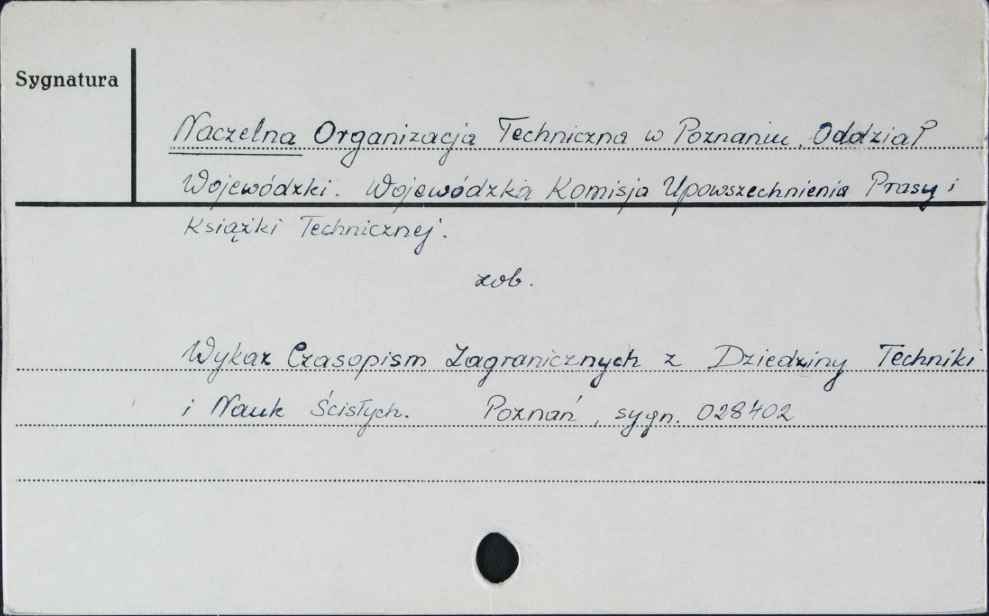 Sygnatura
Naczelna Organizacja Techniczna w Poznaniu, Oddział
Wojewódzki. Wojewódzka Komisja Upowszechnienia Prasy i
Książki Technicznej.
zob.
Wykaz Czasopism Zagranicznych z Dziedziny Techniki
i Nauk Ścisłych. Poznań, sygn. 028402